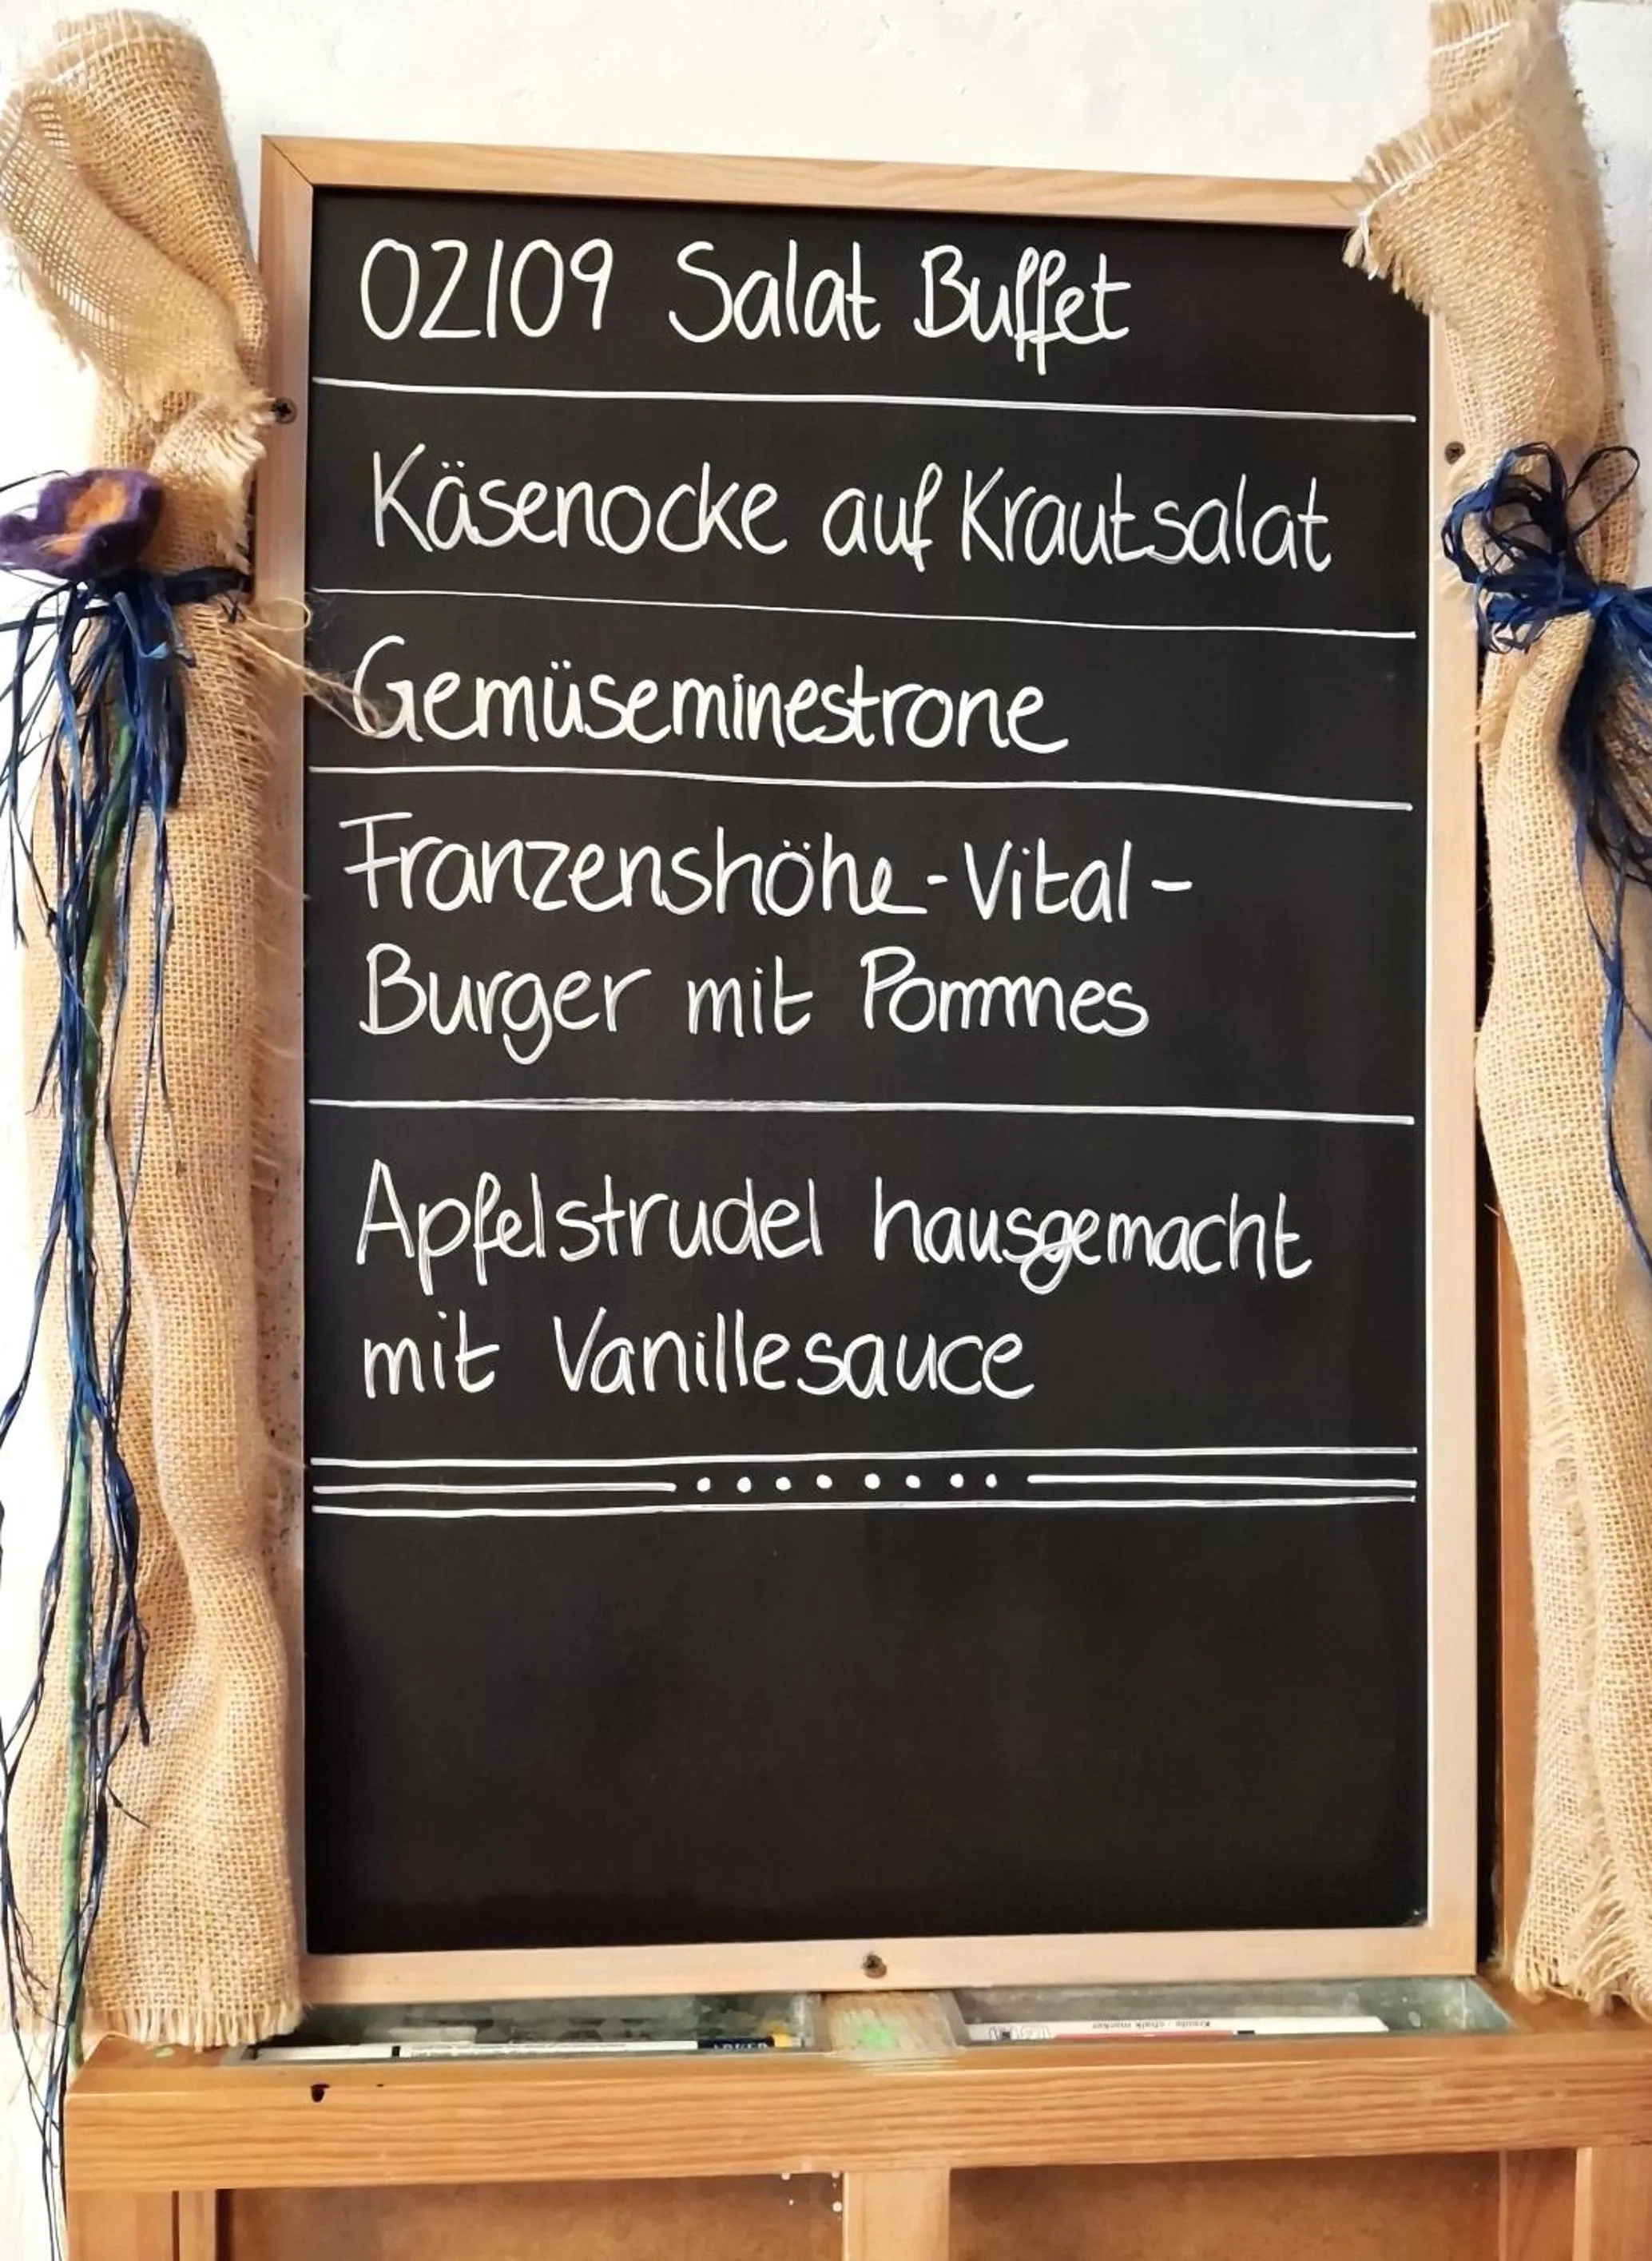 02/09 Salat Buffet
Käsenocke auf Krautsalat
Gemüseminestrone
Franzenshöhe-Vital-
Burger mit Pommes
Apfelstrudel hausgemacht
mit Vanillesauce
Kreide - chalk marker